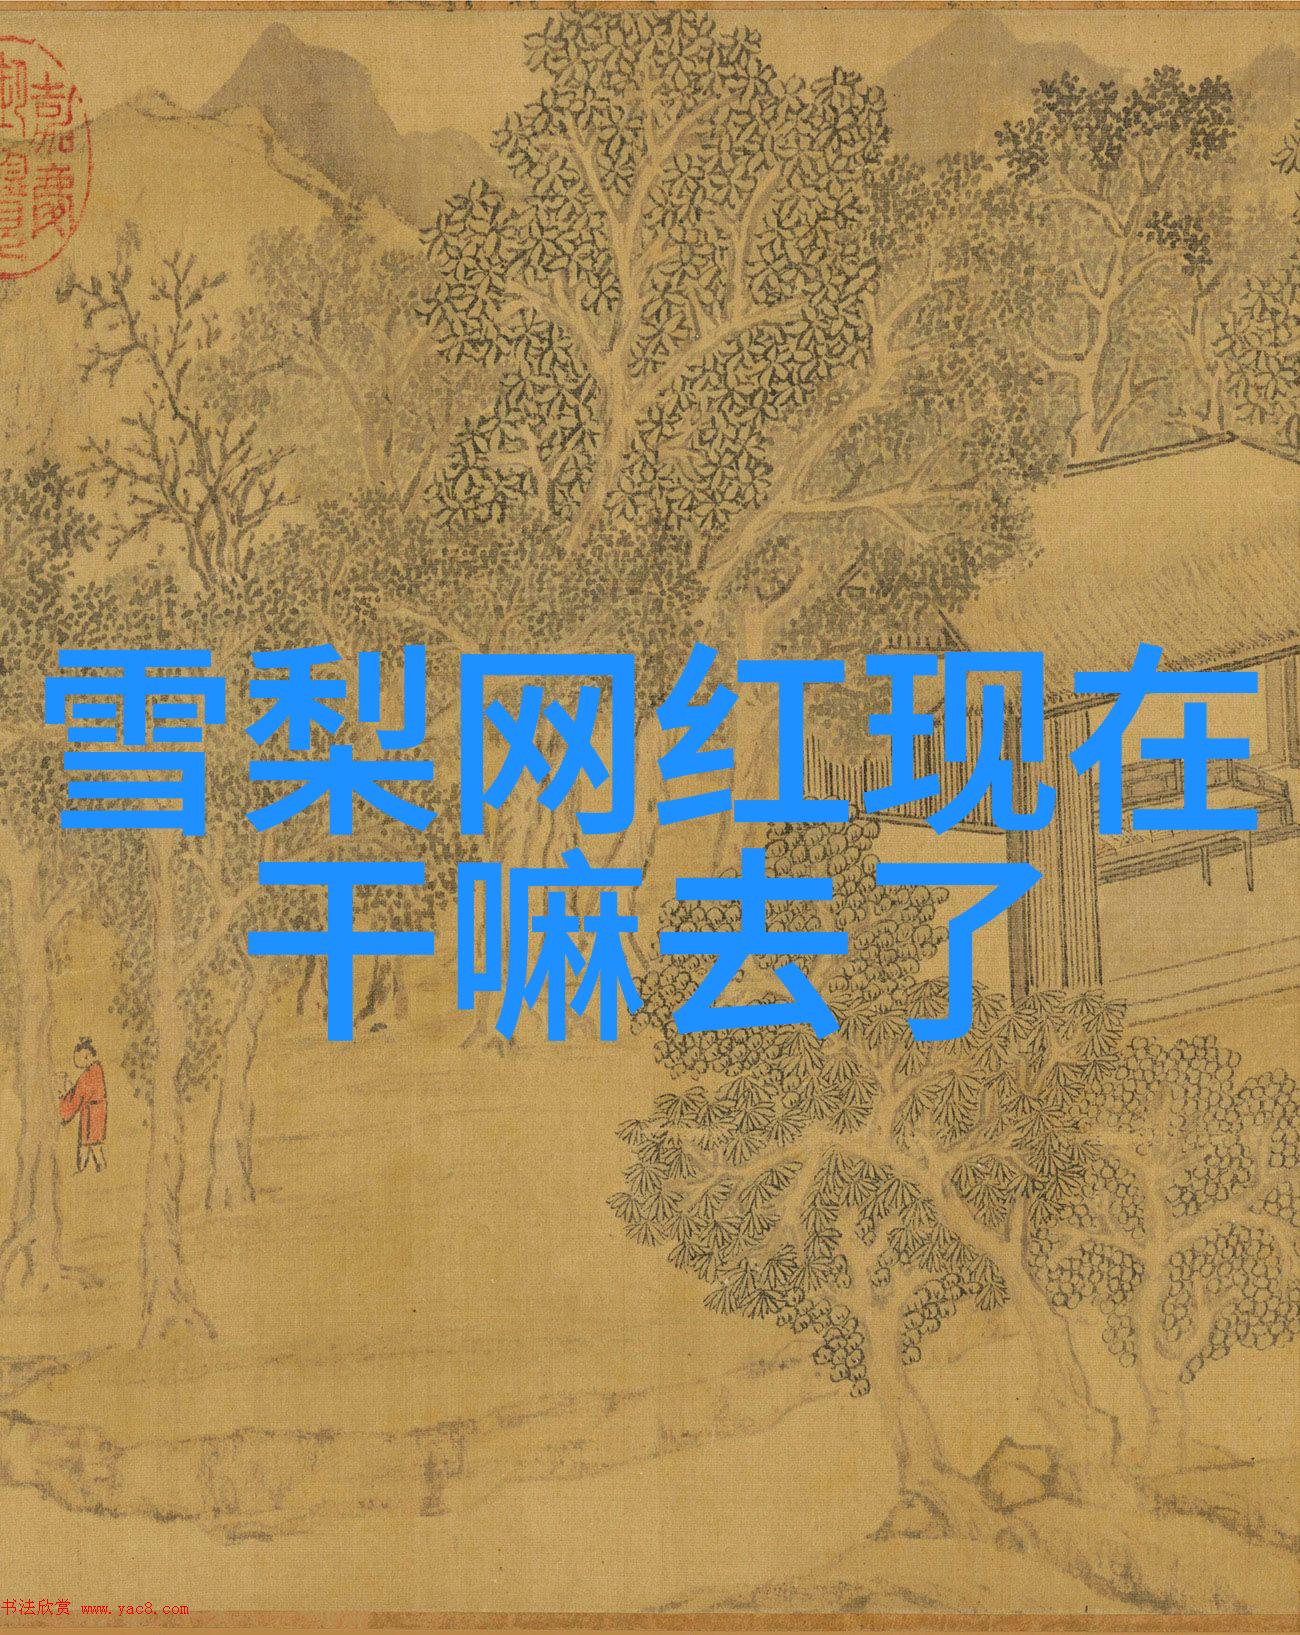 嘉慶
雪梨网红现在
干嘛去了
书法欣赏 www.yac8.com